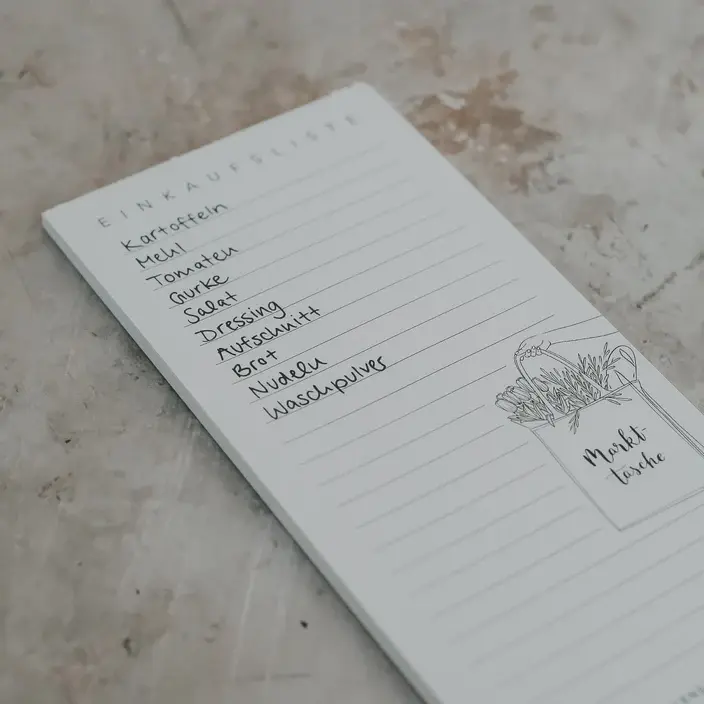 EINKAUFSLISTE
Kartoffeln
Mehl
Tomaten
Gurke
Salat
Dressing
Aufschnitt
Brot
Nudeln
Waschpulver
Markt-
tasche